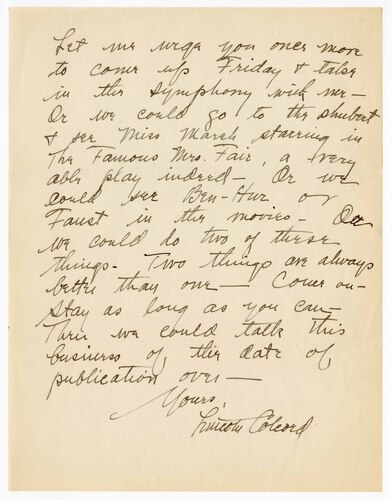 Let me urge you once more
to come up Friday & take
in the symphony with me—
Or we could go to the Shubert
& see Miss Marsh starring in
The Famous Mrs. Fair, a very
able play indeed— Or we
could see Ben-Hur or
Faust in the movies— Or
we could do two of these
things. Two things are always
better than one— Come on—
Stay as long as you can—
Then we could talk this
business of the date of
publication over—
Yours,
Lincoln Colcord